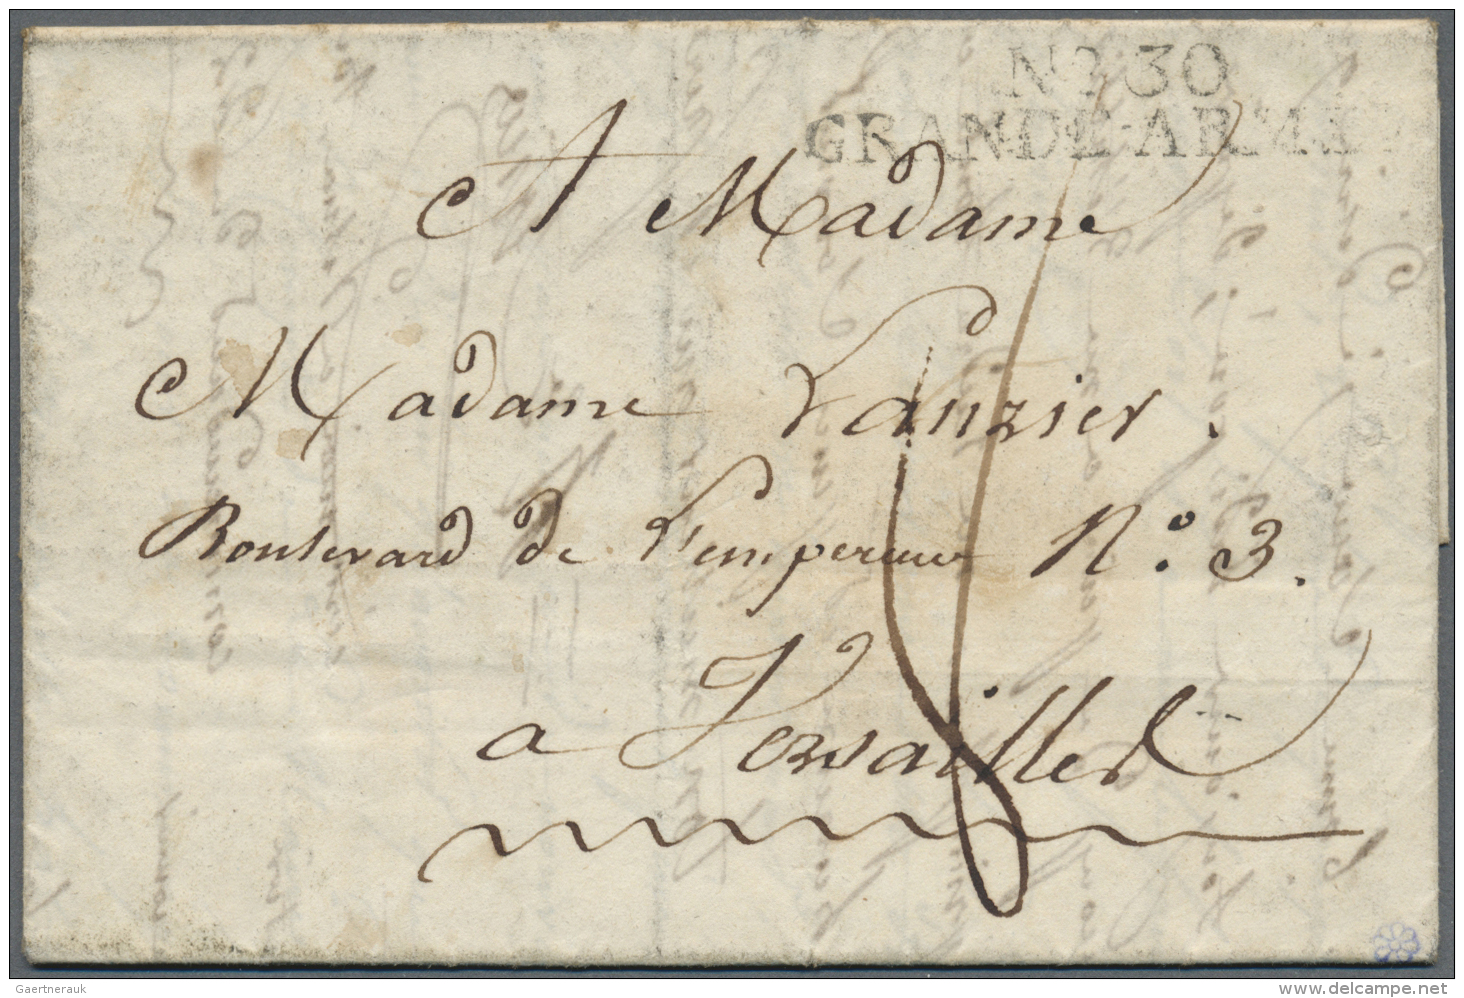 No 30
GRANDE-ARMÉE
A Madame
Madame Lanzier.
Boulevard de L'empereur No. 3.
a Versailles
Gaertnerauk
www.delcampe.net